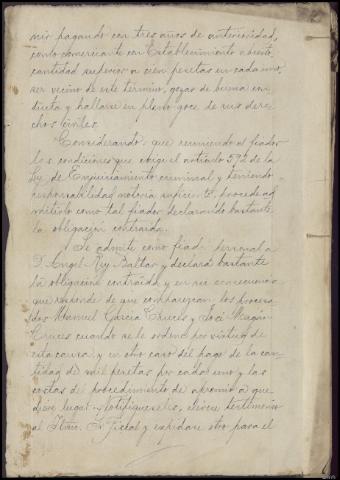 nir pagando con tres años de anterioridad,
como comerciante con Establecimiento abierto,
cantidad superior a cien pesetas en cada uno,
ser vecino de este término, gozar de buena con-
ducta y hallarse en pleno goce de sus dere-
chos civiles.
Considerando: que reuniendo el fiador
las condiciones que exige el artículo 592 de la
Ley de Enjuiciamiento criminal y teniendo
responsabilidad notoria suficiente, procede ad-
mitirlo como tal fiador, declarando bastante
la obligación contraida.
Se admite como fiador personal a
D. Angel Rey Baltar y declara bastante
la obligación contraida, y en su consecuencia
que responde de que comparezcan los procesa-
dos Manuel García Cruces y José Magán
Cruces cuando se le ordene por virtud de
esta causa y en otro caso del pago de la can-
tidad de mil pesetas por cada uno y las
costas del procedimiento de apremio a que
diere lugar. Notifíquese, elévese testimonio
al Iltmo. Sr. Fiscal y expídase otro para el